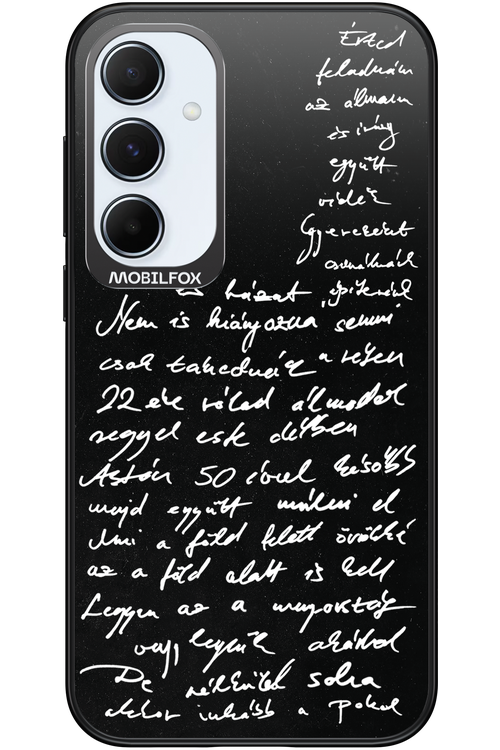 Érted
feladnám
az álmaim
és irány
együtt
vidék
Gyereket
csinálnák
MOBILFOX
és házat építenék
Nem is hiányozna semmi
csak takednék a részen
22 éve rólad álmodok
reggel este délben
Aztán 50 évvel később
majd együtt múlni el
Ami a föld felett örökké
az a föld alatt is kell
Legyen az a mennyország
vagy legyünk akárhol
De nélküled soha
akkor inkább a pokol